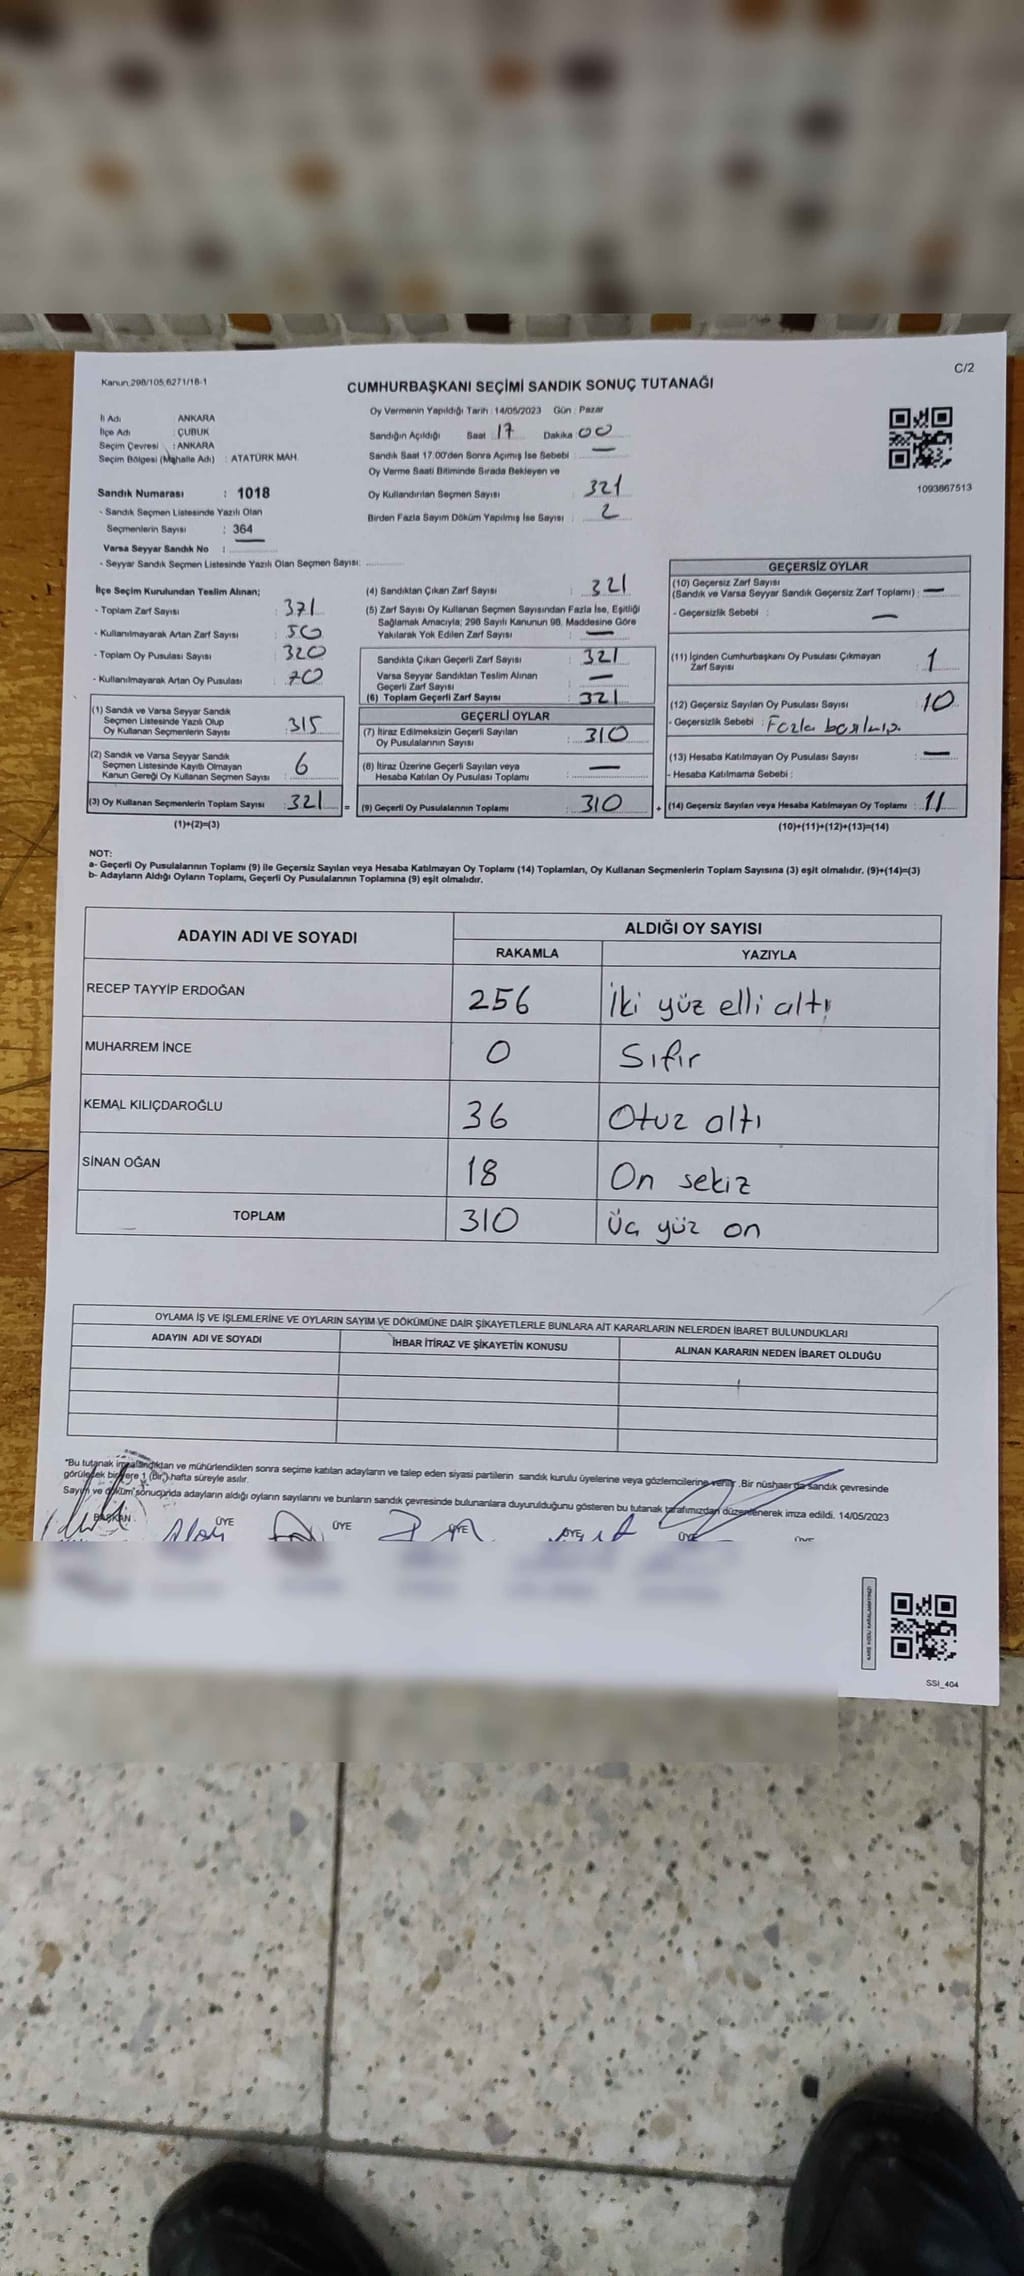 Kanun.298/105,6271/18-1
C/2
CUMHURBAŞKANI SEÇİMİ SANDIK SONUÇ TUTANAĞI
İl Adı : ANKARA
İlçe Adı : ÇUBUK
Seçim Çevresi : ANKARA
Seçim Bölgesi (Mahalle Adı) : ATATÜRK MAH.
Sandık Numarası : 1018
- Sandık Seçmen Listesinde Yazılı Olan
Seçmenlerin Sayısı : 364
Varsa Seyyar Sandık No :
- Seyyar Sandık Seçmen Listesinde Yazılı Olan Seçmen Sayısı:
Oy Vermenin Yapıldığı Tarih : 14/05/2023 Gün : Pazar
Sandığın Açıldığı Saat : 17 Dakika : 00
Sandık Saat 17.00'den Sonra Açımış İse Sebebi : —
Oy Verme Saati Bitiminde Sırada Bekleyen ve
Oy Kullandırılan Seçmen Sayısı : 321
Birden Fazla Sayım Döküm Yapılmış İse Sayısı : 2
1093867513
İlçe Seçim Kurulundan Teslim Alınan;
- Toplam Zarf Sayısı : 371
- Kullanılmayarak Artan Zarf Sayısı : 50
- Toplam Oy Pusulası Sayısı : 320
- Kullanılmayarak Artan Oy Pusulası : 70
(1) Sandık ve Varsa Seyyar Sandık
Seçmen Listesinde Yazılı Olup
Oy Kullanan Seçmenlerin Sayısı : 315
(2) Sandık ve Varsa Seyyar Sandık
Seçmen Listesinde Kayıtlı Olmayan
Kanun Gereği Oy Kullanan Seçmen Sayısı : 6
(3) Oy Kullanan Seçmenlerin Toplam Sayısı : 321 =
(1)+(2)=(3)
(4) Sandıktan Çıkan Zarf Sayısı : 321
(5) Zarf Sayısı Oy Kullanan Seçmen Sayısından Fazla İse, Eşitliği
Sağlamak Amacıyla; 298 Sayılı Kanunun 98. Maddesine Göre
Yakılarak Yok Edilen Zarf Sayısı : —
Sandıkta Çıkan Geçerli Zarf Sayısı : 321
Varsa Seyyar Sandıktan Teslim Alınan
Geçerli Zarf Sayısı : —
(6) Toplam Geçerli Zarf Sayısı : 321
GEÇERLİ OYLAR
(7) İtiraz Edilmeksizin Geçerli Sayılan
Oy Pusulalarının Sayısı : 310
(8) İtiraz Üzerine Geçerli Sayılan veya
Hesaba Katılan Oy Pusulası Toplamı : —
(9) Geçerli Oy Pusulalarının Toplamı : 310 +
GEÇERSİZ OYLAR
(10) Geçersiz Zarf Sayısı
(Sandık ve Varsa Seyyar Sandık Geçersiz Zarf Toplamı) : —
- Geçersizlik Sebebi : —
(11) İçinden Cumhurbaşkanı Oy Pusulası Çıkmayan
Zarf Sayısı : 1
(12) Geçersiz Sayılan Oy Pusulası Sayısı : 10
- Geçersizlik Sebebi : Fazla
(13) Hesaba Katılmayan Oy Pusulası Sayısı : —
- Hesaba Katılmama Sebebi :
(14) Geçersiz Sayılan veya Hesaba Katılmayan Oy Toplamı : 11
(10)+(11)+(12)+(13)=(14)
NOT:
a- Geçerli Oy Pusulalarının Toplamı (9) ile Geçersiz Sayılan veya Hesaba Katılmayan Oy Toplamı (14) Toplamları, Oy Kullanan Seçmenlerin Toplam Sayısına (3) eşit olmalıdır. (9)+(14)=(3)
b- Adayların Aldığı Oyların Toplamı, Geçerli Oy Pusulalarının Toplamına (9) eşit olmalıdır.
ADAYIN ADI VE SOYADI ALDIĞI OY SAYISI
RAKAMLA YAZIYLA
RECEP TAYYİP ERDOĞAN 256 İki yüz elli altı
MUHARREM İNCE 0 Sıfır
KEMAL KILIÇDAROĞLU 36 Otuz altı
SİNAN OĞAN 18 On sekiz
TOPLAM 310 Üç yüz on
OYLAMA İŞ VE İŞLEMLERİNE VE OYLARIN SAYIM VE DÖKÜMÜNE DAİR ŞİKAYETLERLE BUNLARA AİT KARARLARIN NELERDEN İBARET BULUNDUKLARI
ADAYIN ADI VE SOYADI İHBAR İTİRAZ VE ŞİKAYETİN KONUSU ALINAN KARARIN NEDEN İBARET OLDUĞU
"Bu tutanak imzalandıktan ve mühürlendikten sonra seçime katılan adayların ve talep eden siyasi partilerin sandık kurulu üyelerine veya gözlemcilerine verilir. Bir nüshası da sandık çevresinde
görülecek bir yere 1 (Bir) hafta süreyle asılır.
Sayım ve döküm sonucunda adayların aldığı oyların sayılarını ve bunların sandık çevresinde bulunanlara duyurulduğunu gösteren bu tutanak tarafımızdan düzenlenerek imza edildi. 14/05/2023
BAŞKAN ÜYE ÜYE ÜYE ÜYE ÜYE ÜYE
SSI_404